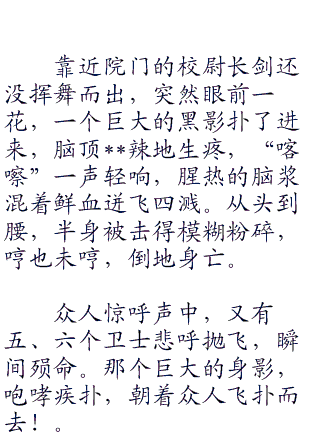 靠近院门的校尉长剑还
没挥舞而出，突然眼前一
花，一个巨大的黑影扑了进
来，脑顶**辣地生疼，“喀
嚓”一声轻响，腥热的脑浆
混着鲜血迸飞四溅。从头到
腰，半身被击得模糊粉碎，
哼也未哼，倒地身亡。
众人惊呼声中，又有
五、六个卫士悲呼抛飞，瞬
间殒命。那个巨大的身影，
咆哮疾扑，朝着众人飞扑而
去！。